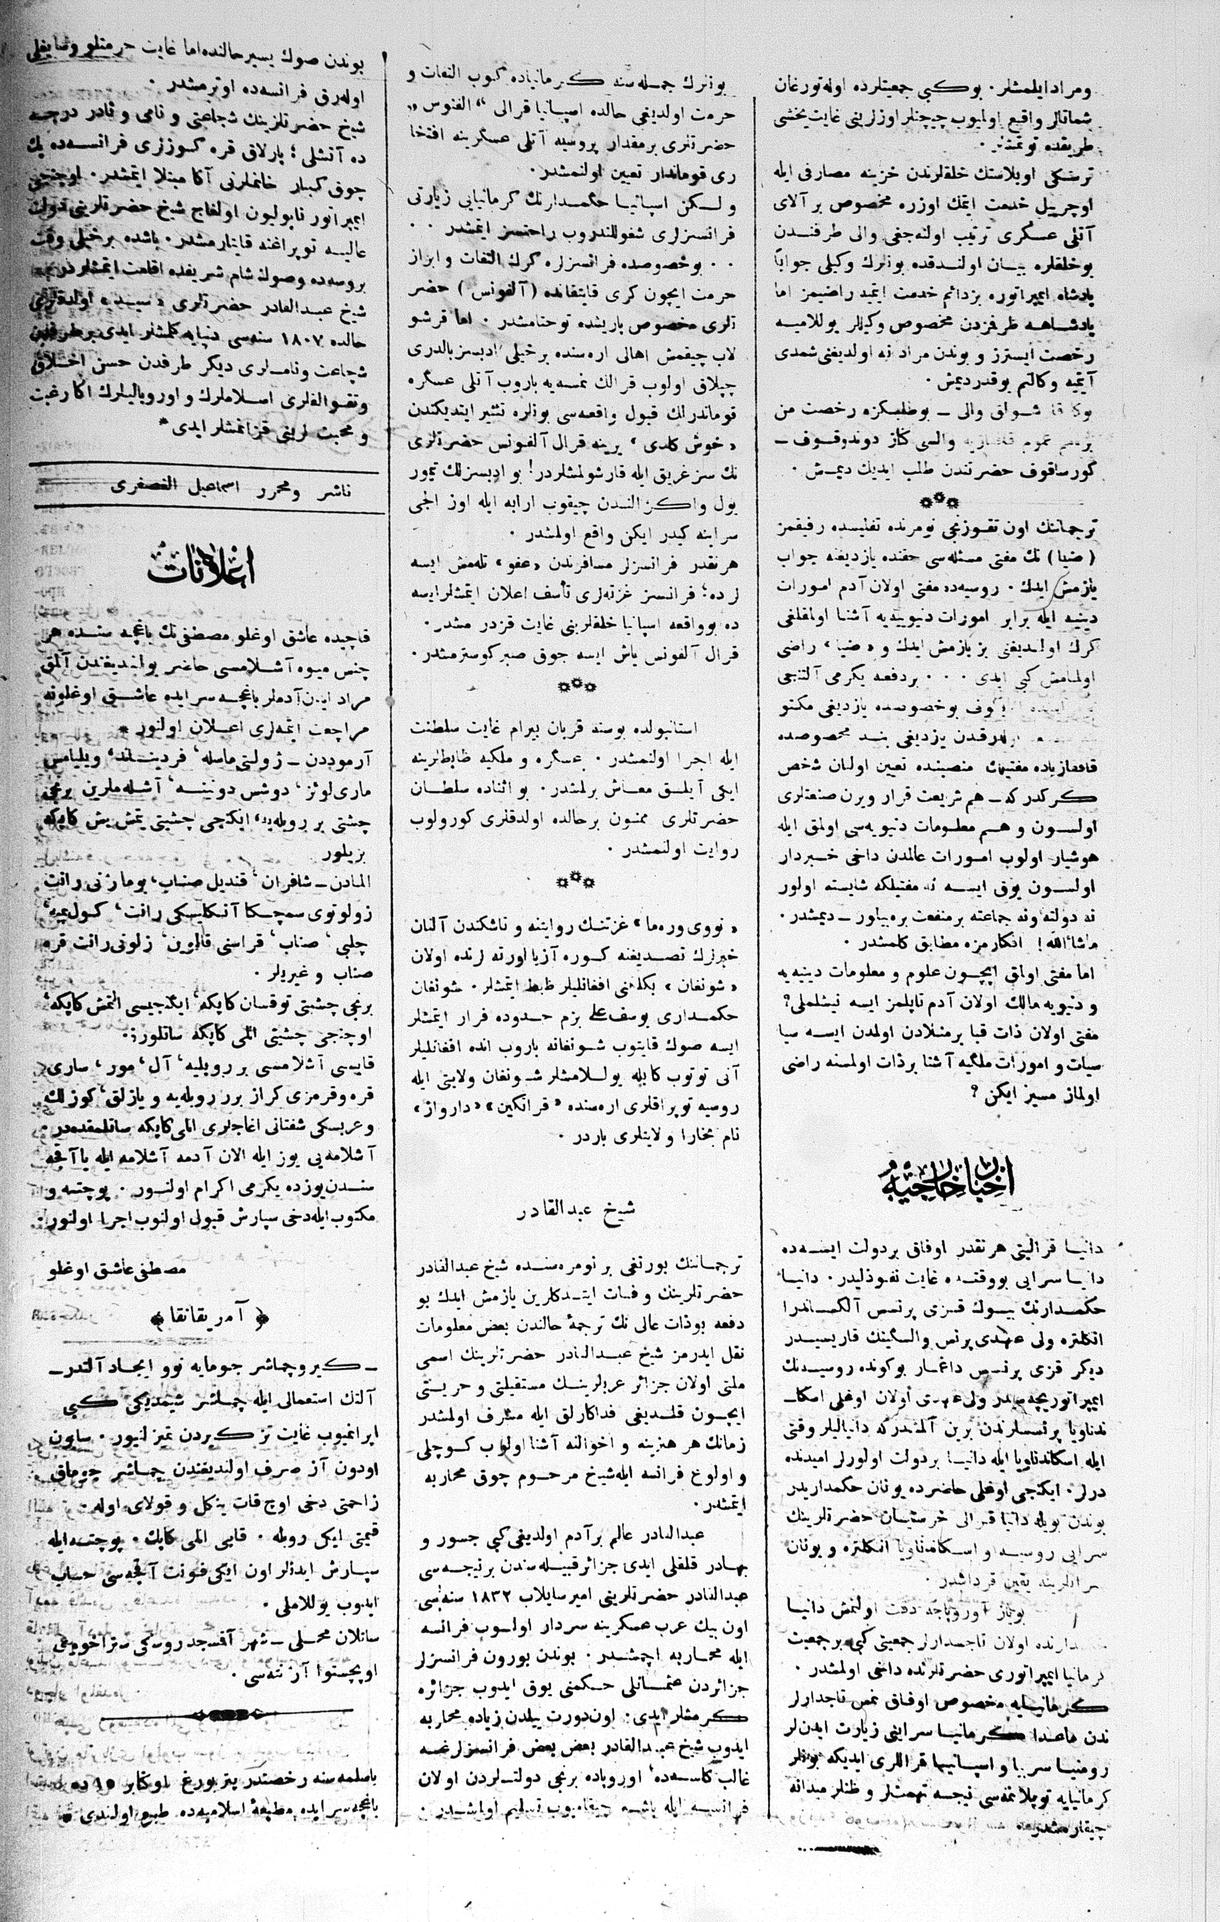 ومراد ایلمشلر. بوکبی جمعیتلرده اوله تورغان
شماتالر واقع اولمیوب چیچنلر اوزلرینی غایت یخشی
طریقده توتمشلر.
ترسکی اوبلاستك خلقلرندن خزینه مصارفی ایله
اوچ ییل خدمت ایتمك اوزره مخصوص بر آلای
آتلی عسگری ترتیب اولنه‌جغی والی طرفندن
بوخلقلره بیان اولندقده بونلرك وکیلی جواباً
پادشاه ایمپراتوره بز دائم خدمت ایتمیه راضیمز اما
پادشاهه طرفزدن مخصوص وکیللر یوللامیه
رخصت ایسترز و بوندن مرادنه اولدیغنی شمدی
آیتمیه وکالتم یوقدر دیمش.
والی ــ بوطلبکزه رخصت من
والسی کناز دوندوقوف ــ
قورساقوف حضرتندن طلب ایدیك دیمش.
ترجماننك اون تقوزنجی نومرنده تفلیسده رفیقمز
(ضیا) نك مفتی مسئله‌سی حقنده یازدیغنه جواب
یازمش ایدك. روسیه‌ده مفتی اولان آدم امورات
دینیه ایله برابر امورات دنیویه‌یه آشنا اولمقلغی
کرك اولدیغنی بز یازمش ایدك و «ضیا» راضی
اولمامش کبی ایدی ... بردفعه یکرمی آلتنجی
بوخصوصده یازدیغی مکتو
یازدیغی بند مخصوصده
قافقازیاده مفتیلك منصبنده تعیین اولنان شخص
کرکدرکه ــ هم شریعت قرار ویرن صنعتلری
اولسون و هم معلومات دنیویه‌سی اولمق ایله
هوشیار اولوب امورات عالمدن داخی خبردار
اولسون یوق ایسه نه مفتیلکه شایسته اولور
نه دولته ونه جماعته بر منفعت بره‌بیلور ــ دیمشدر.
ماشاالله! افکارمزه مطابق کلمشدر.
اما مفتی اولمق ایچون علوم و معلومات دینیه‌یه
و دنیویه مالك اولان آدم تاپلمز ایسه نیشلملی؟
مفتی اولان ذات قبا بر منلادن اولمدن ایسه سیا
سیات و امورات ملکیه آشنا برذات اولمسنه راضی
اولماز مسیز ایکن؟
اخبار خارجیه
دانیا قرالیتی هرنقدر اوفاق بردولت ایسه‌ده
دانیا سرایی بووقتده غایت نفوذلیدر. دانیا
حکمدارینك بیوك قیزی پرنسس آلکساندرا
انکلتره ولی عهدی پرنس والسکینك قاریسیدر
دیگر قزی پرنسس داغمار بوکونده روسیه‌نك
ایمپراتوریچه‌سیدر ولی عهدی اولان اوغلی اسکا‌ـ
ندناویا پرنسسلرندن برین آلمشدرکه دانیالیلر وقتی
ایله اسکاندناویا ایله دانیا بردولت اولورلر امیدنده
درلر. ایکنجی اوغلی حاضرده یونان حکمداریدر
بوندن بویله دانیا قرالی خرستیان حضرتلرینك
سرایی روسیه و اسکاندناویا انکلتره و یونان
سرایلرینه یقین قرداشدر.
بوتاز آوروپاجه دقت اولنمش دانیا
اولان تاجدارلر جمعیتی کبی بر جمعیت
گرمانیا ایمپراتوری حضرتلرنده داخی اولمشدر.
گرمانیایه مخصوص اوفاق نمس تاجدارلر
ندن ماعدا گرمانیا سراینی زیارت ایدن‌لر
رومنیا سربیا و اسپانیا قراللری ایدیکه بونلر
گرمانیایه توپلانمه‌سی نیجه تهمتلر و ظنلر میدانه
چیقارمشدر.
بونلرك جمله‌سنه گرمانیاده کوب التفات و
حرمت اولدیغی حالده اسپانیا قرالی "الفنوس"
حضرتلری بر مقدار پروسیه آتلی عسگرینه افتخا
ری قوماندار تعیین اولنمشدر.
و لکن اسپانیا حکمدارینك گرمانیایی زیارتی
فرانسزلری شغوللندروب راحتسز ایتمشدر..
.. بوخصوصده فرانسزلره گرك التفات و ابراز
حرمت ایچون گری قایتقانده (آلفونس) حضر
تلری مخصوص پاریسده توختامشدر. اما قرشو
لاب چیقمش اهالی اره‌سنده برخیلی ادبسز بالدری
چپلاق اولوب قرالك نمسه‌یه باروب آتلی عسگره
قوماندرلك قبول واقعه‌سی بونلره تثیر ایتدیکندن
«خوش کلدی» یرینه قرال آلفونس حضرتلری
نك سز غریق ایله قارشولمشلردر! بو ادبسزلك تیمور
یول واگزالندن چیقوب ارابه ایله اوز الجی
سراینه کیدر ایکن واقع اولمشدر.
هرنقدر فرانسزلر مسافرندن «عفو» تله‌مش ایسه
لرده؛ فرانسز غزته‌لری تأسف اعلان ایتمشلرایسه
ده بوواقعه اسپانیا خلقلرینی غایت قزدرمشدر.
قرال آلفونس یاش ایسه جوق صبر کوسترمشدر.
استانبولده بوسنه قربان بیرام غایت سلطنت
ایله اجرا اولنمشدر. عسگره و ملکیه ظابطلرینه
ایکی آیلق معاش برلمشدر. بو اثناده سلطان
حضرتلری ممنون برحالده اولدقلری کورولوب
روایت اولنمشدر.
«نووی وره‌ما» غزتنك روایتنه و تاشکندن آلنان
خبرلرك تصدیغنه کوره آزیا اورته لرنده اولان
«شونغان» بکلغنی افغانلیلر ظبط ایتمشلر. شونغان
حکمداری یوسف علی بزم حدوده فرار ایتمشلر
ایسه صوك قایتوب شونغانه باروب انده افغانلیلر
آنی توتوب کابله یوللامشلر شونغان ولایتی ایله
روسیه توپراقلری اره‌سنده «قراتکین» «دارواز»
نام بخارا ولایتلری باردر.
شیخ عبدالقادر
ترجماننك یورتغی بر نومره‌سنده شیخ عبدالقادر
حضرتلرینك وفات ایتدکلرین یازمش ایدك بو
دفعه بوذات عالی نك ترجمهٔ حالندن بعض معلومات
نقل ایدرمز شیخ عبدالقادر حضرتلرینك اسمی
ملتی اولان جزائر عربلرینك مستقیلتی و حریتی
ایچون قلدیغی فداکارلق ایله مشرف اولمشدر
زمانك هر هنرینه و احوالنه آشنا اولوب کوچلی
و اولوغ فرانسه ایله شیخ مرحوم چوق محاربه
ایتمشدر.
عبدالقادر عالم برآدم اولدیغی کبی جسور و
بهادر قلقلی ایدی جزائر قبیله‌سندن برنیجه‌سی
عبدالقادر حضرتلرینی امیر سایلاب ۱۸۳۲ سنه‌سی
اون بیك عرب عسکرینه سردار اولوب فرانسه
ایله محاربه اچمشدر. بوندن بورون فرانسزلر
جزائردن عثمانلی حکمنی یوق ایدوب جزائره
گرمشلر ایدی. اون دورت ییلدن زیاده محاربه
ایدوب شیخ عبدالقادر بعض بعض فرانسزلرغه
غالب کلسه‌ده اوروپاده برنجی دولتلردن اولان
فرانسه ایله باشه چیقامیوب تسلیم اولمشدر.
بوندن صوك یسیر حالنده اما غایت حرمتلو وشایغلی
اوله‌رق فرانسه‌ده اوترمشدر.
شیخ حضرتلرینك شجاعتی و نامی و قادر درجه
ده آتشلی؛ یارلاق قره کوزلری فرانسه‌ده پك
چوق کبار خانملرنی آکا مبتلا ایتمشدر. اوچنجی
ایمپراتور ناپولیون اولغاچ شیخ حضرتلرینی دولت
عالیه توپراغنه قایتارمشدر. باشده برخیلی وقت
بروسه‌ده وصوك شام شریفده اقامت ایتمشلر در
شیخ عبدالقادر حضرتلری «سید» اولدقلری
حالده ۱۸۰۷ سنه‌سی دنیایه کلمشلر ایدی برطرفدن
شجاعت ونامــلری دیگر طرفدن حسن اخلاق
وتقوالقلری اسلاملرك و اوروپالیلرك آکا رغبت
و محبت لرینی قزانمشلر ایدی*
ناشر ومحرر اسماعیل الغصفری
اعلانات
قاچیده عاشق اوغلو مصطفی‌نك باغچه سنده هر
جنس میوه آشلامسی حاضر بولندیغندن آلمق
مراد ایدن آدملر باغچه سرایده عاشق اوغلونه
مراجعت ایتمه‌لری اعلان اولنور*
آرموددن ــ ژولی ماسله، فردیناند، ویلیامس
ماری لوئز، دوشس دونینه، آشله‌ملرین برنجی
چشتی بر روبله‌یه، ایکنجی چشتی یتمش بش کاپکه
بریلور
المادن ــ شافران، قندیل صناب، بومازنی رانت
زولوتوی سمچکا آنکلیسکی رانت، کول‌پمبه،
چلبی، صناب، قراسنی قالوین، زلونی رانت قره
صناب و غیریلر.
برنجی چشتی توقسان کاپکه، ایکنجیسی التمش کاپکه،
اوچنجی چشتی اللی کاپکه ساتلور.
قایسی آشلامسی بر روبلیه، آل، مور، ساری
قره وقرمزی کراز برر روبله‌یه و یازلق، کوزلك
و عربسکی شفتالی اغاجلری اللی کاپکه ساتلمقده‌در.
آشلامه‌یی یوز ایله الان آدمه آشلامه ایله یا آقچه
سندن یوزده یکرمی اکرام اولنور. پوچته و
مکتوب ایله دخی سپارش قبول اولنوب اجرا اولنور.
مصطفی عاشق اوغلو
﴿ آمریقانقا ﴾
ــ کیر وچماشر جومایه نوو ایجاد آلتدر ــ
آلتك استعمالی ایله چماشر شیمدیکی کبی
اپرانمیوب غایت تز کیردن تمیزلنیور. سابون
اودون آز صرف اولندیغندن چماشر جومق
زاحمتی دخی اوچ قات ینکل و قولای اوله.
قیمتی ایکی روبله. قایی اللی کاپك. پوچته‌ایله
سپارش ایدنلر اون ایکی فونت آقچه‌سی حساب
ایدوب یوللاملی.
ساتلان محلی ــ شهر آقمسجد روسکی ستراخووی
اوبچستوا آژنته‌سی.
باصلمه‌سنه رخصتدر پتربورغ اوکتابر ۱۵ ده
باغچه سرایده مطبعهٔ اسلامیه‌ده طبع اولندی